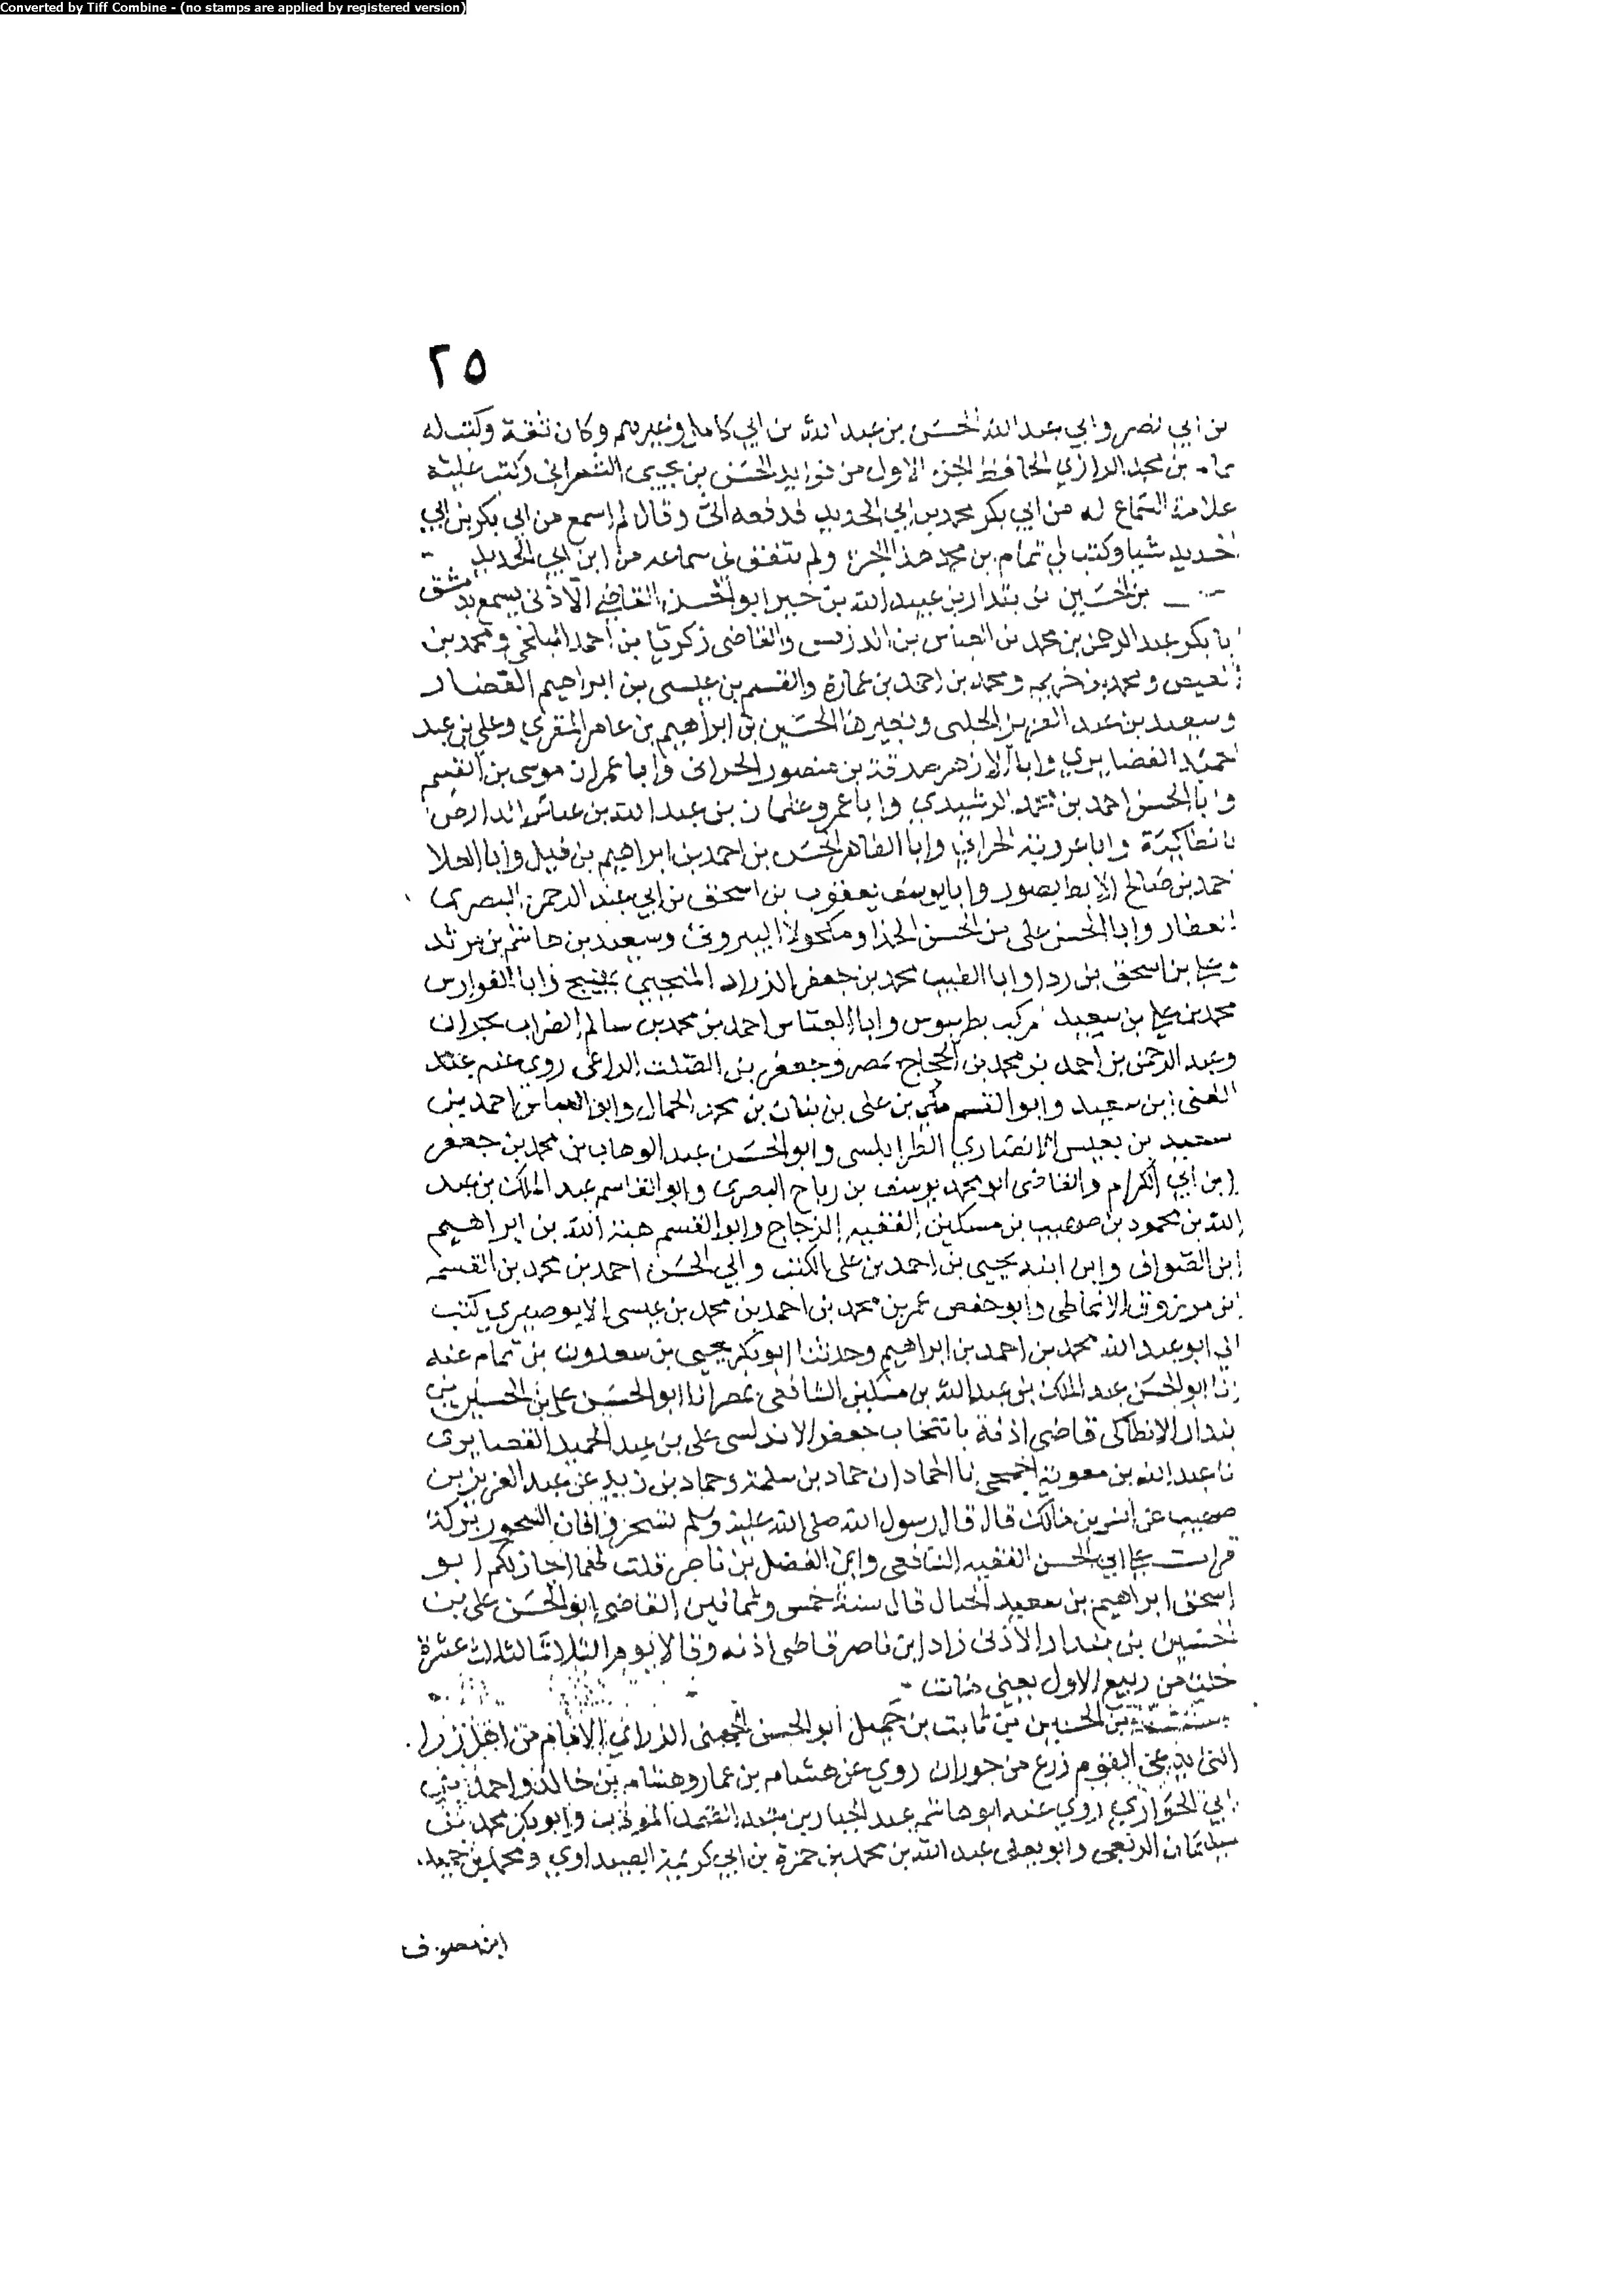 Converted by Tiff Combine - (no stamps are applied by registered version)
٢٥
بن ابي نصر وابي عبد الله الحسين بن عبد الله بن ابي كامل وغيرهم وكان ثقة وكتب له
بن محمد الرازي الحافظ الجزء الاول من فوايد الحسن بن يحيى الشعراني وكتب عليه
علامة السماع له من ابي بكر محمد بن ابي الحديد فدفعه الي وقال لم اسمع من ابي بكر بن ابي
الحديد شيا وكتب لي تمام بن محمد هذا الجزء ولم يتفق لي سماعه من ابن ابي الحديد
بن الحسين بن بندار بن عبيد الله بن خير ابو الحسن القاضي الاذني سمع بدمشق
ابا بكر عبد الرحمن بن محمد بن العباس بن الدرفس والقاضي زكريا بن احمد البلخي ومحمد بن
الفيض ومحمد بن خريم ومحمد بن احمد بن عمارة والقسم بن عيسى بن ابراهيم القصار
وسعيد بن عبد العزيز الحلبي وبغيرها الحسين بن ابراهيم بن عامر المقري وعلي بن عبد
الحميد الغضايري وابا الازهر صدقة بن منصور الحراني وابا عمران موسى بن القسم
وابا الحسن احمد بن محمد الرشيدي وابا عمرو عثمان بن عبد الله بن عباس
بانطاكية وابا عروبة الحراني وابا الطاهر الحسن بن احمد بن ابراهيم بن فيل وابا العلا
احمد بن صالح الابط بصور وابا يوسف يعقوب بن اسحق بن ابي عبد الرحمن البصري
العطار وابا الحسن علي بن الحسن الحذا ومكحولا البيروتي وسعيد بن هاشم بن مرثد
وعلي بن اسحق بن ردا وابا الطيب محمد بن جعفر الزراد المنبجي بمنبج وابا الفوارس
محمد بن علي بن سعيد مركب بطرسوس وابا العباس احمد بن محمد بن سالم الضراب بحران
وعبد الرحمن بن احمد بن محمد بن الحجاج بمصر وجعفر بن الصلت الداعي روى عنه عبد
الغني بن سعيد وابو القسم مكي بن علي بن بنان بن محمد الحمال وابو العباس احمد بن
سعيد بن نفيس الانصاري الطرابلسي وابو الحسن عبد الوهاب بن محمد بن جعفر
ابن ابي الكرام والقاضي ابو محمد يوسف بن رباح البصري وابو القاسم عبد الملك بن عبد
الله بن محمود بن صهيب بن مسكين الفقيه الزجاج وابو القسم هبة الله بن ابراهيم
ابن الصواف وابن ابنه يحيى بن احمد بن علي الكتب وابي الحسن احمد بن محمد بن القسم
ابن مرزوق الانماطي وابو حفص عمر بن محمد بن احمد بن محمد بن عيسى الابوصيري كتب
الي ابو عبد الله محمد بن احمد بن ابراهيم وحدثنا ابو بكر يحيى بن سعدون بن تمام عنه
انا ابو الحسن عبد الملك بن عبد الله بن مسكين الشافعي بمصر انا ابو الحسن علي بن الحسين بن
بندار الانطاكي قاضي اذنة بانتخاب جعفر الاندلسي علي بن عبد الحميد الغضايري
نا عبد الله بن معوية الجمحي نا الحمادان حماد بن سلمة وحماد بن زيد عن عبد العزيز بن
صهيب عن انس بن مالك قال قال رسول الله صلى الله عليه وسلم تسحروا فان السحور بركة
قرات على ابي الحسن الفقيه الشافعي وابي الفضل بن ناصر قلت لهما اجاز لكم ابو
اسحق ابراهيم بن سعيد الحبال قال سنة خمس وثمانين القاضي ابو الحسن علي بن
الحسين بن بندار الاذني زاد ابن ناصر قاضي اذنه وقالا يوم الثلاثا لثلاث عشرة
خلت من ربيع الاول يعني مات
بن الحسين بن ثابت بن جميل ابو الحسن الجهني الزراي الامام من اهل زرا
التي تدعى اليوم زرع من حوران روى عن هشام بن عمار وهشام بن خالد واحمد بن
ابي الحواري روى عنه ابو هاشم عبد الجبار بن عبد الصمد المودب وابو بكر محمد بن
سليمان الربعي وابو يعلى عبد الله بن محمد بن حمزة بن ابي كريمة الصيداوي ومحمد بن حميد
ابن معيوف